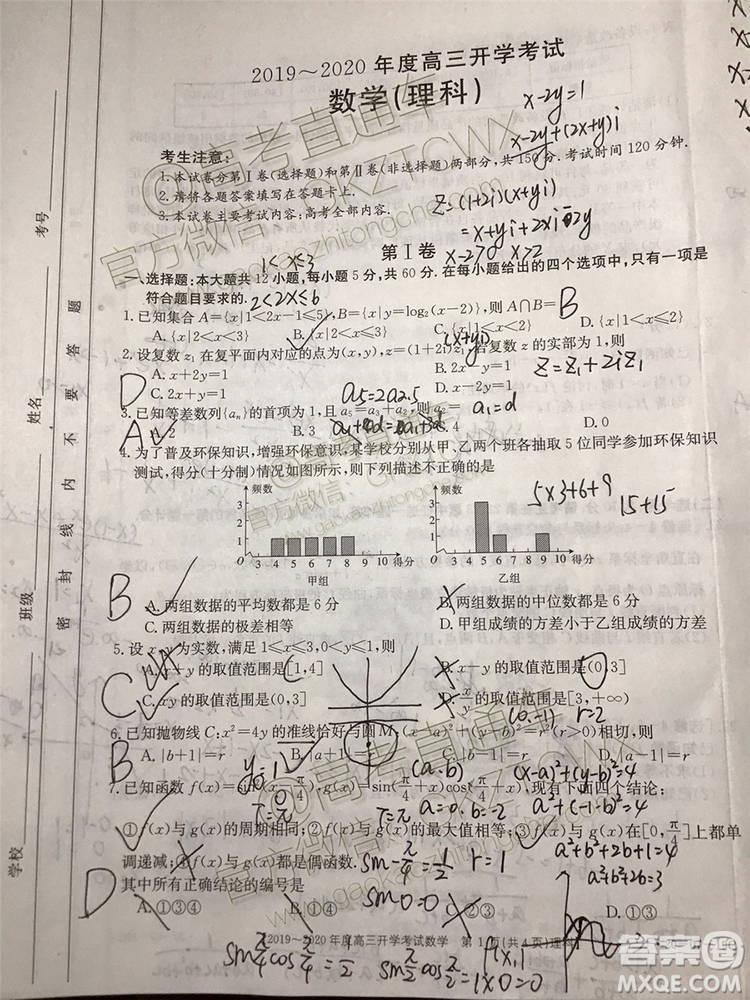 2019～2020 年度高三开学考试
数学(理科)
x-2y=1
x-2y+(2x+y)i
考生注意:
1.本试卷分第Ⅰ卷(选择题)和第Ⅱ卷(非选择题)两部分,共150分.考试时间120分钟.
2.请将各题答案填写在答题卡上.
3.本试卷主要考试内容:高考全部内容.
z=(1+2i)(x+yi)
=x+yi+2xi-2y
第Ⅰ卷
1<x≤3
x-2>0 x>2
一、选择题:本大题共12小题,每小题5分,共60分.在每小题给出的四个选项中,只有一项是
符合题目要求的.
2<2x≤6
1.已知集合A={x|1<2x-1≤5},B={x|y=log₂(x-2)},则A∩B=
B
A.{x|2<x<3} B.{x|2<x≤3} C.{x|1<x≤3} D.{x|1<x≤2}
(x+yi)
2.设复数z₁在复平面内对应的点为(x,y),z=(1+2i)z₁,若复数z的实部为1,则
A.x+2y=1 B.2x-y=1
z=z₁+2iz₁
D
C.2x+y=1 D.x-2y=1
3.已知等差数列{aₙ}的首项为1,且
A
A.2 B.3 C.4
a₁=d
4.为了普及环保知识,增强环保意识,某学校分别从甲、乙两个班各抽取5位同学参加环保知识
测试,得分(十分制)情况如图所示,则下列描述不正确的是
频数
3
2
1
O 3 4 5 6 7 8 9 10 得分
甲组
频数
3
2
1
O 3 4 5 6 7 8 9 10 得分
乙组
5×3+6+9
15+15
B
A.两组数据的平均数都是6分 B.两组数据的中位数都是6分
C.两组数据的极差相等 D.甲组成绩的方差小于乙组成绩的方差
5.设x,y为实数,满足1≤x≤3,0<y≤1,则
A.x+y的取值范围是[1,4] B.x-y的取值范围是(0,3]
C
C.xy的取值范围是(0,3] D.x/y的取值范围是[3,+∞)
(0,-1) r=2
6.已知抛物线C:x²=4y的准线恰好与圆M:
相切,则
B
A.|b+1|=r B.|a+1|=r C.|b-1|=r D.|a-1|=r
(a,b) (x-a)²+(y-b)²=4
7.已知函数f(x)=
,g(x)=sin(π/4+x)cos(π/4+x),现有下面四个结论:
T=π T=π a=0,b=2 a²+(-1-b)²=4
①f(x)与g(x)的周期相同;②f(x)与g(x)的最大值相等;③f(x)与g(x)在[0,π/4]上都单
调递减;④f(x)与g(x)都是偶函数.
a²+b²+2b+1=4
a²+b²+2b=3
r=1
D
其中所有正确结论的编号是
sin 0=0
A.①③④ B.①④ D.①③
2019～2020年度高三开学考试数学 第1页(共4页)理科
sin π/4 cos π/4 = 1/2 sin π/2 cos π/2
=1×0=0
学校 班级 姓名 考号
密 封 线 内 不 要 答 题
@高考直通车
官方微信:GKZTCWX
答案圈
DAANQUAN.COM